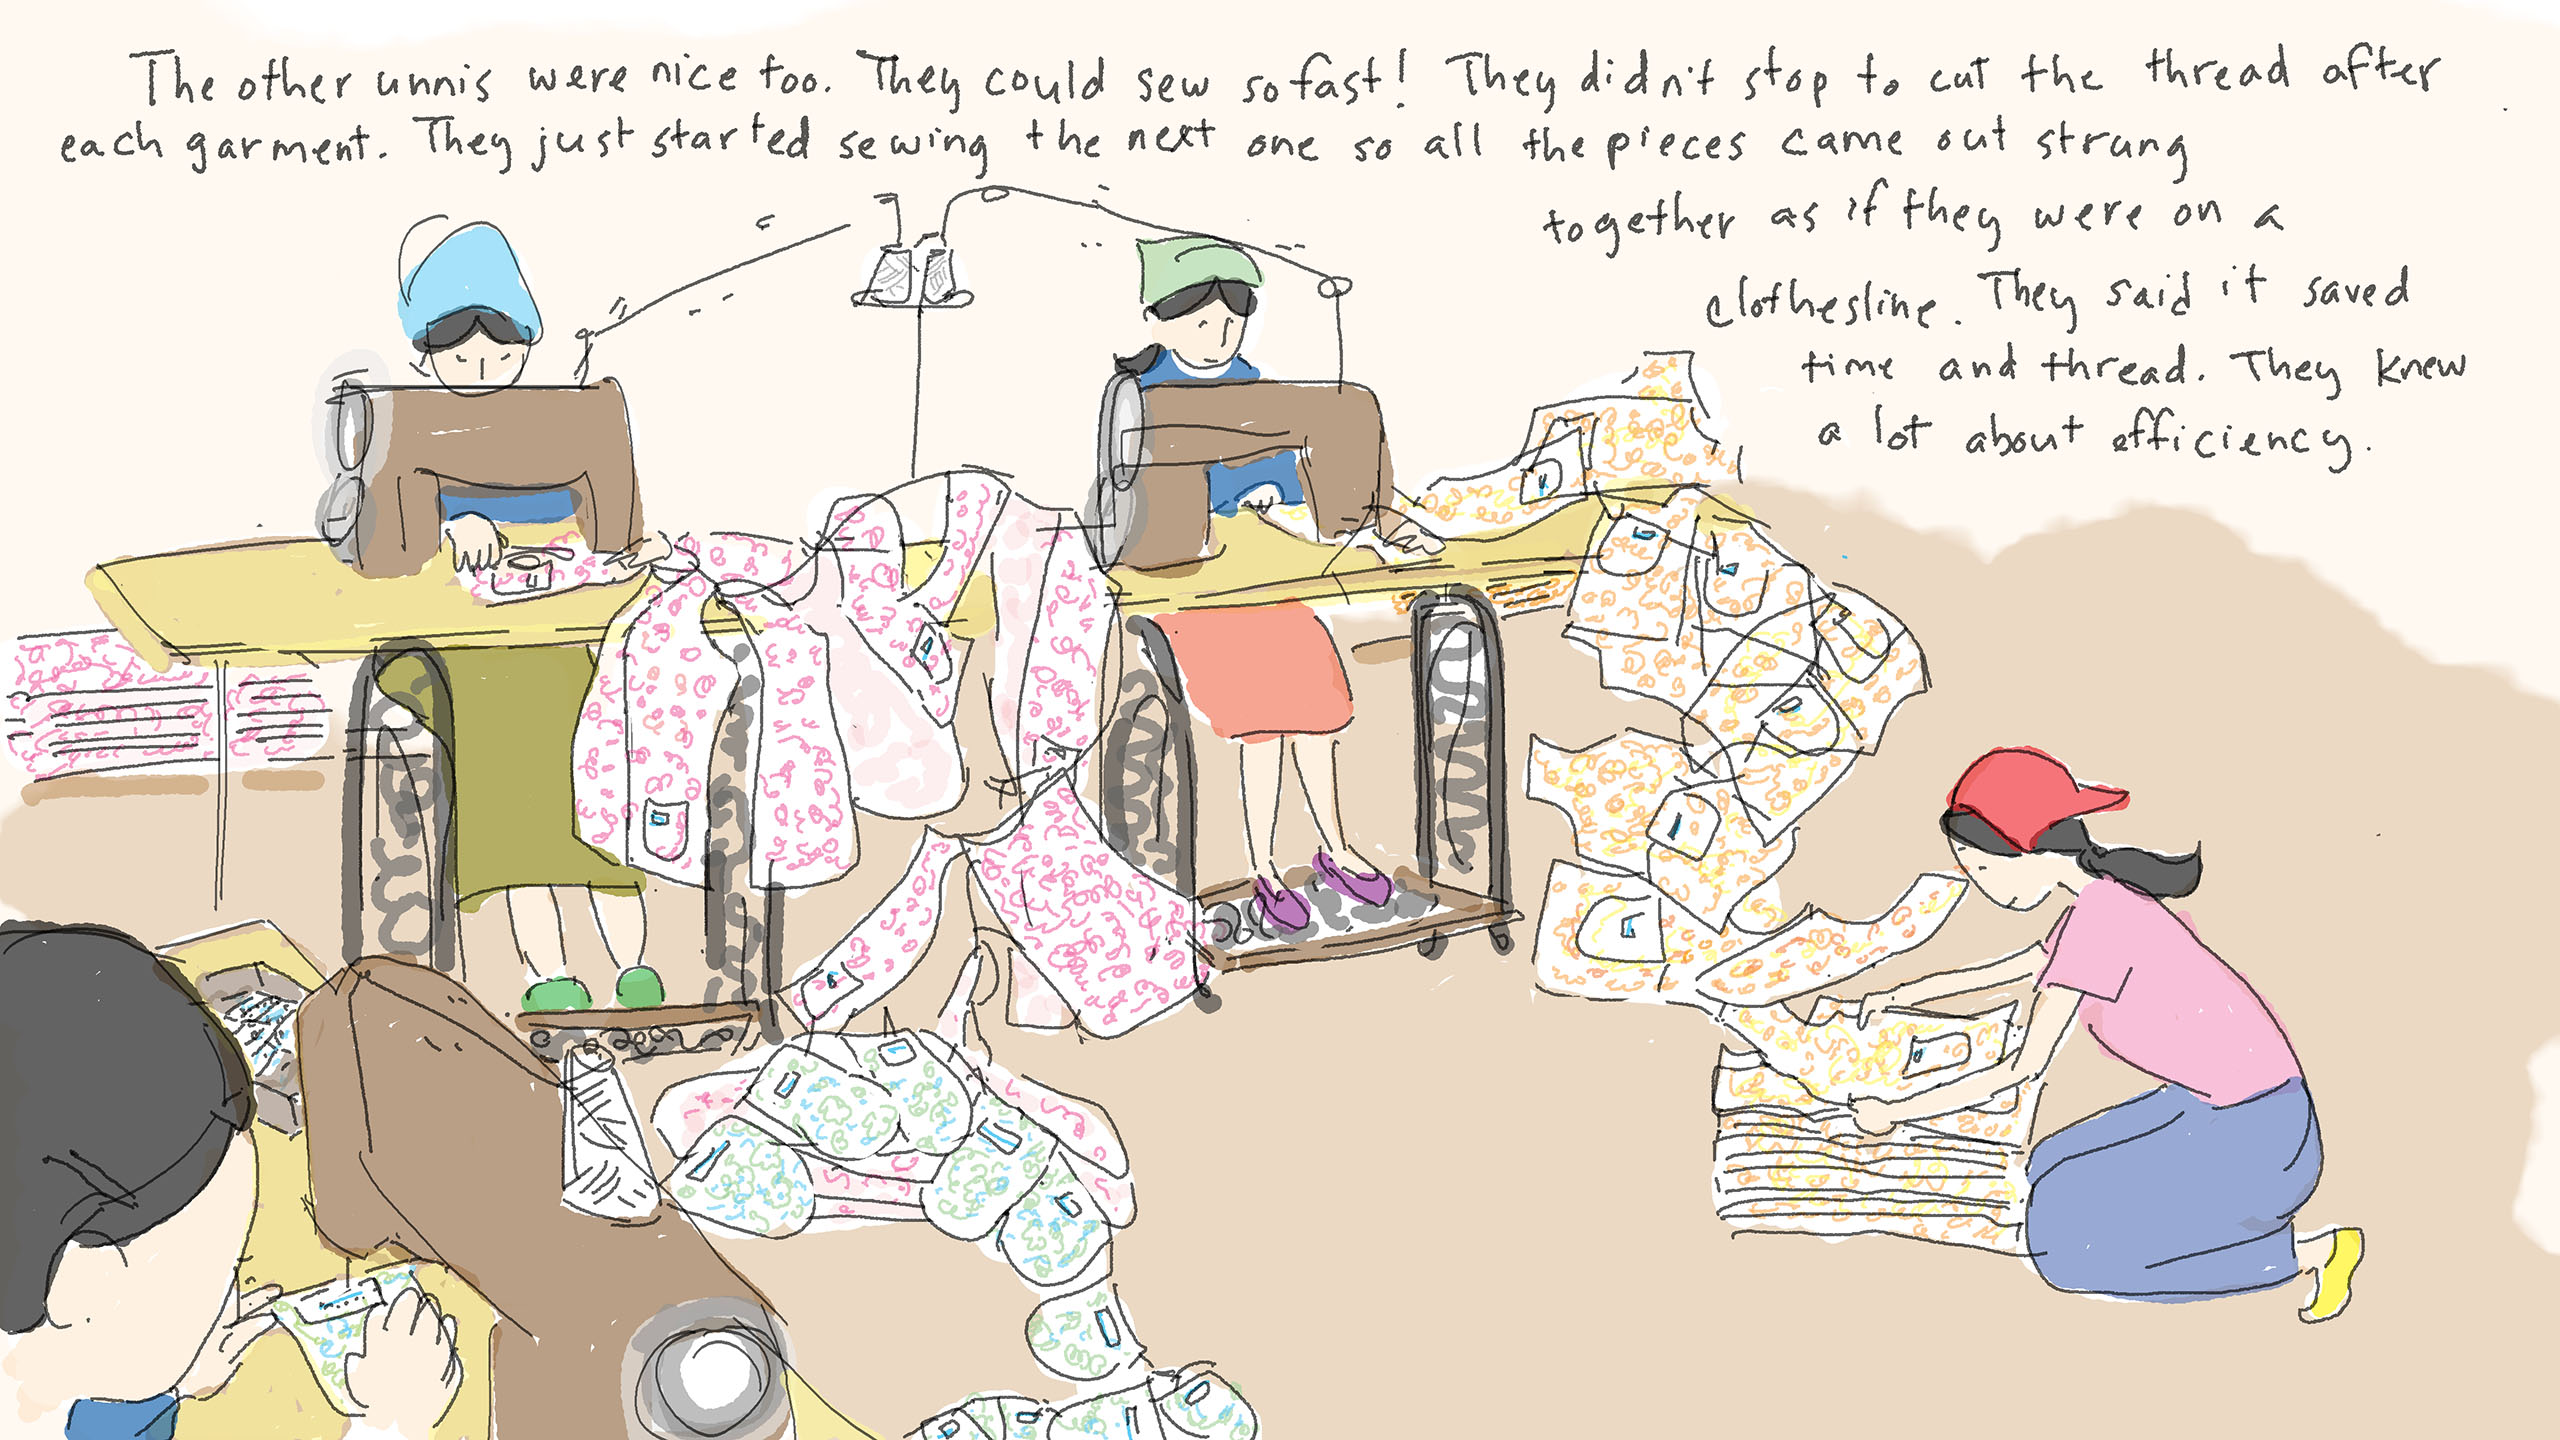 The other unnis were nice too. They could sew so fast! They didn't stop to cut the thread after
each garment. They just started sewing the next one so all the pieces came out strung
together as if they were on a
clothesline. They said it saved
time and thread. They knew
a lot about efficiency.